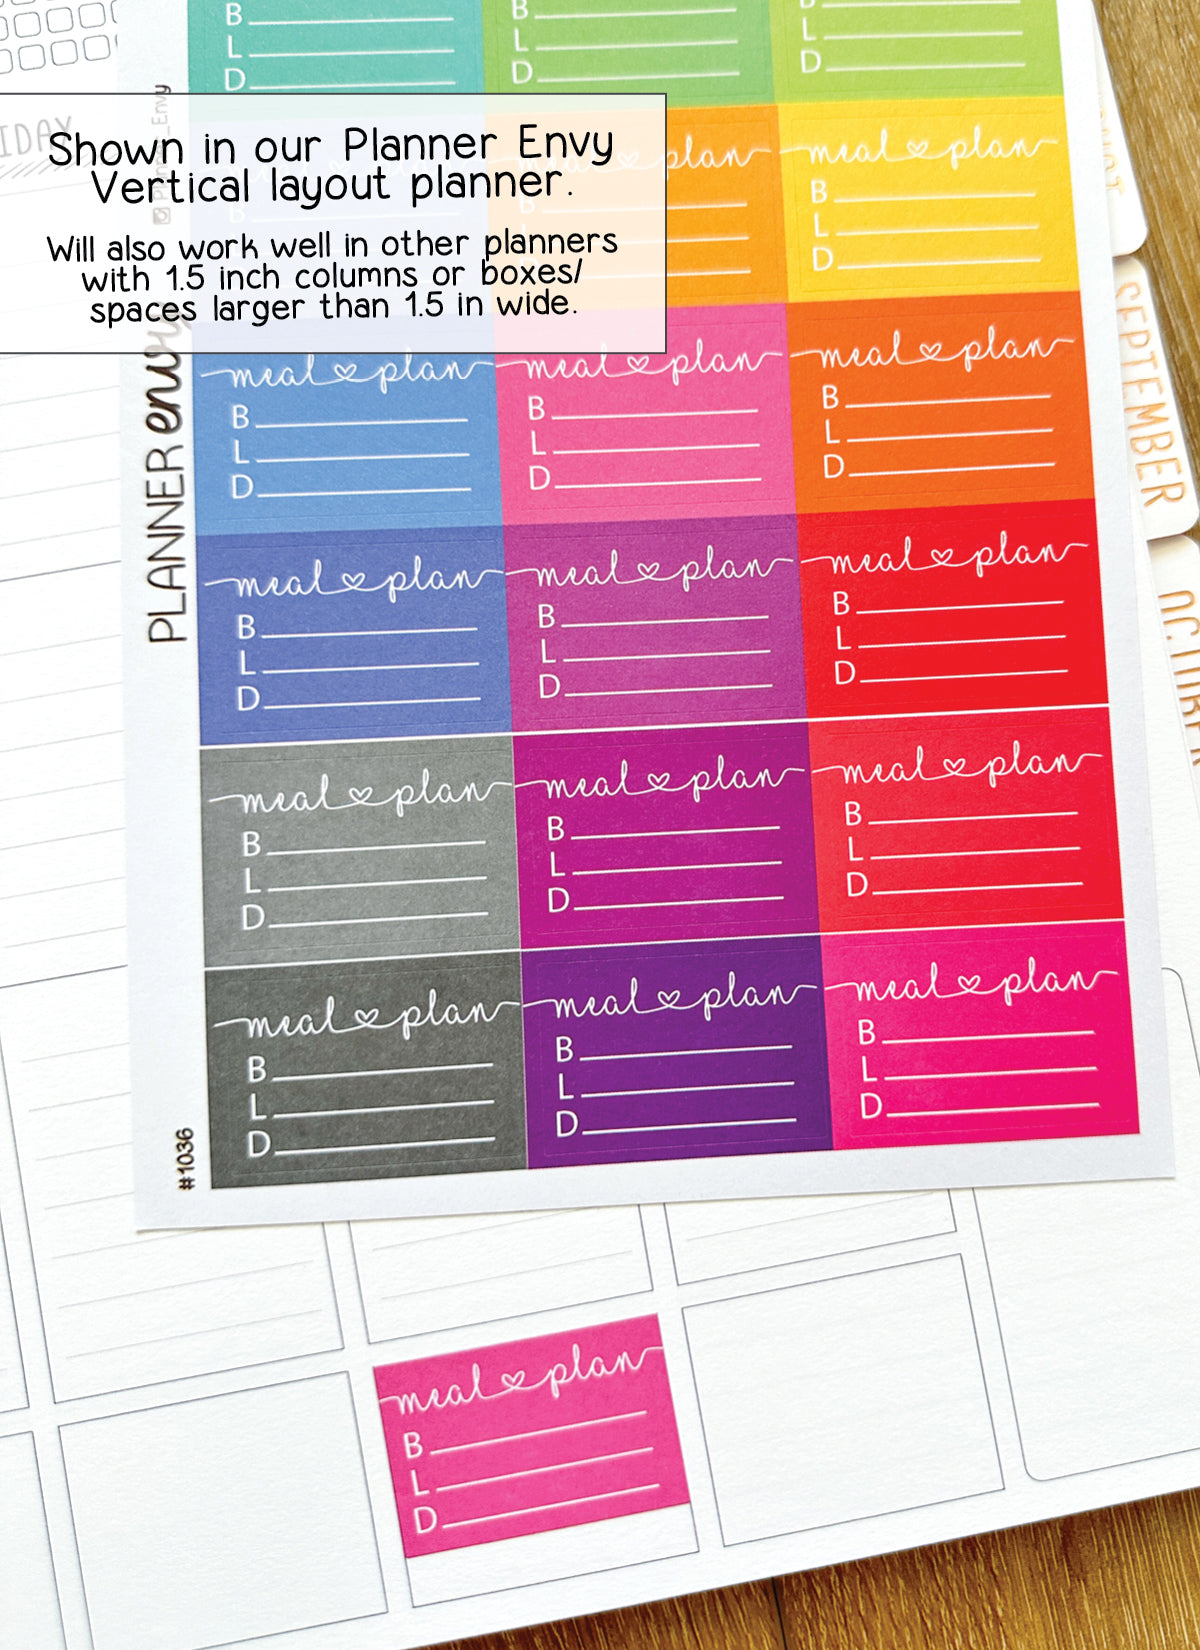 B
L
D
B
L
D
B
L
D
IDAY
Shown in our Planner Envy
Vertical layout planner.
Will also work well in other planners
with 1.5 inch columns or boxes/
spaces larger than 1.5 in wide.
plan
meal plan
B
L
D
PLANNER envy
meal plan
B
L
D
meal plan
B
L
D
meal plan
B
L
D
meal plan
B
L
D
meal plan
B
L
D
meal plan
B
L
D
meal plan
B
L
D
meal plan
B
L
D
meal plan
B
L
D
meal plan
B
L
D
meal plan
B
L
D
meal plan
B
L
D
#1036
SEPTEMBER
OCTOBER
meal plan
B
L
D